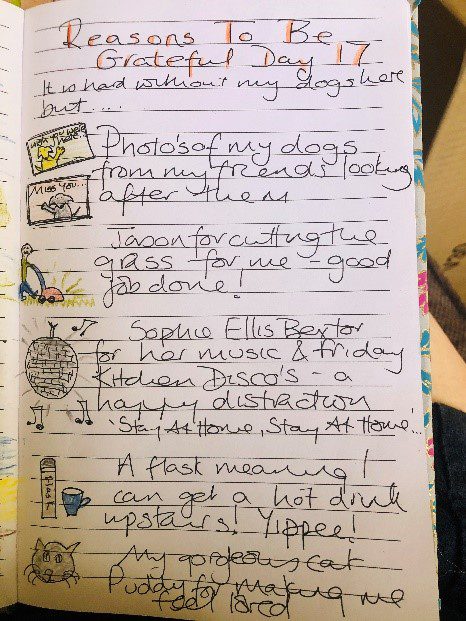 Reasons To Be
Grateful Day 17
It is hard without my dogs here
but....
Miss you
Photo's of my dogs
from my friends looking
after them
Jason for cutting the
grass for me - good
job done!
Sophie Ellis Bextor
for her music & friday
Kitchen Disco's - a
happy distraction
'Stay At Home, Stay At Home'..
A flask meaning I
can get a hot drink
upstairs! Yippee!
My gorgeous cat
Puddy for making me
feel loved